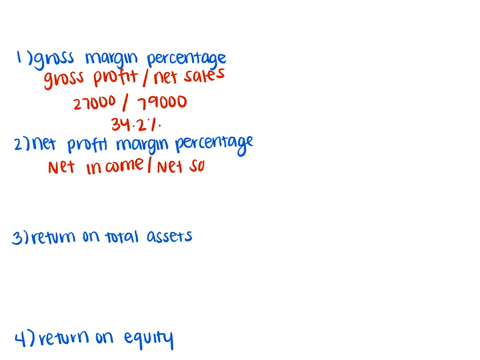 1) gross margin percentage
gross profit / net sales
27000 / 79000
34.2%
2) net profit margin percentage
Net income / Net sa
3) return on total assets
4) return on equity